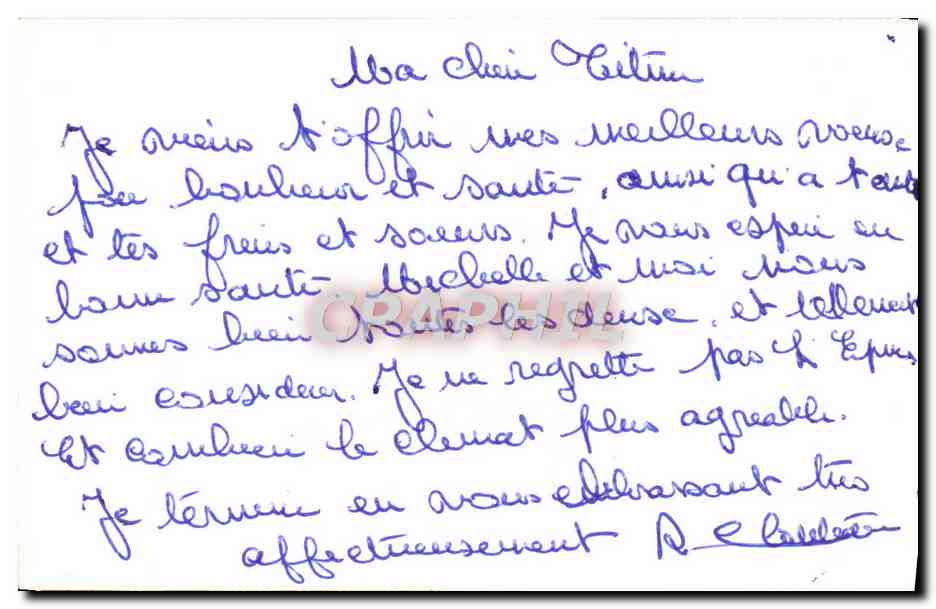 Ma chère Titine
Je viens t'offrir mes meilleurs voeux
pour bonheur et santé, ainsi qu'a tante
et tes freres et soeurs. Je vous espere en
bonne santé Michelle et moi nous
CRAPHIL
sommes bien toutes les deux, et tellement
bien considerer. Je ne regrette pas L'
Et combien le climat plus agreable.
Je términe en vous embrassant très
affectueusement R.